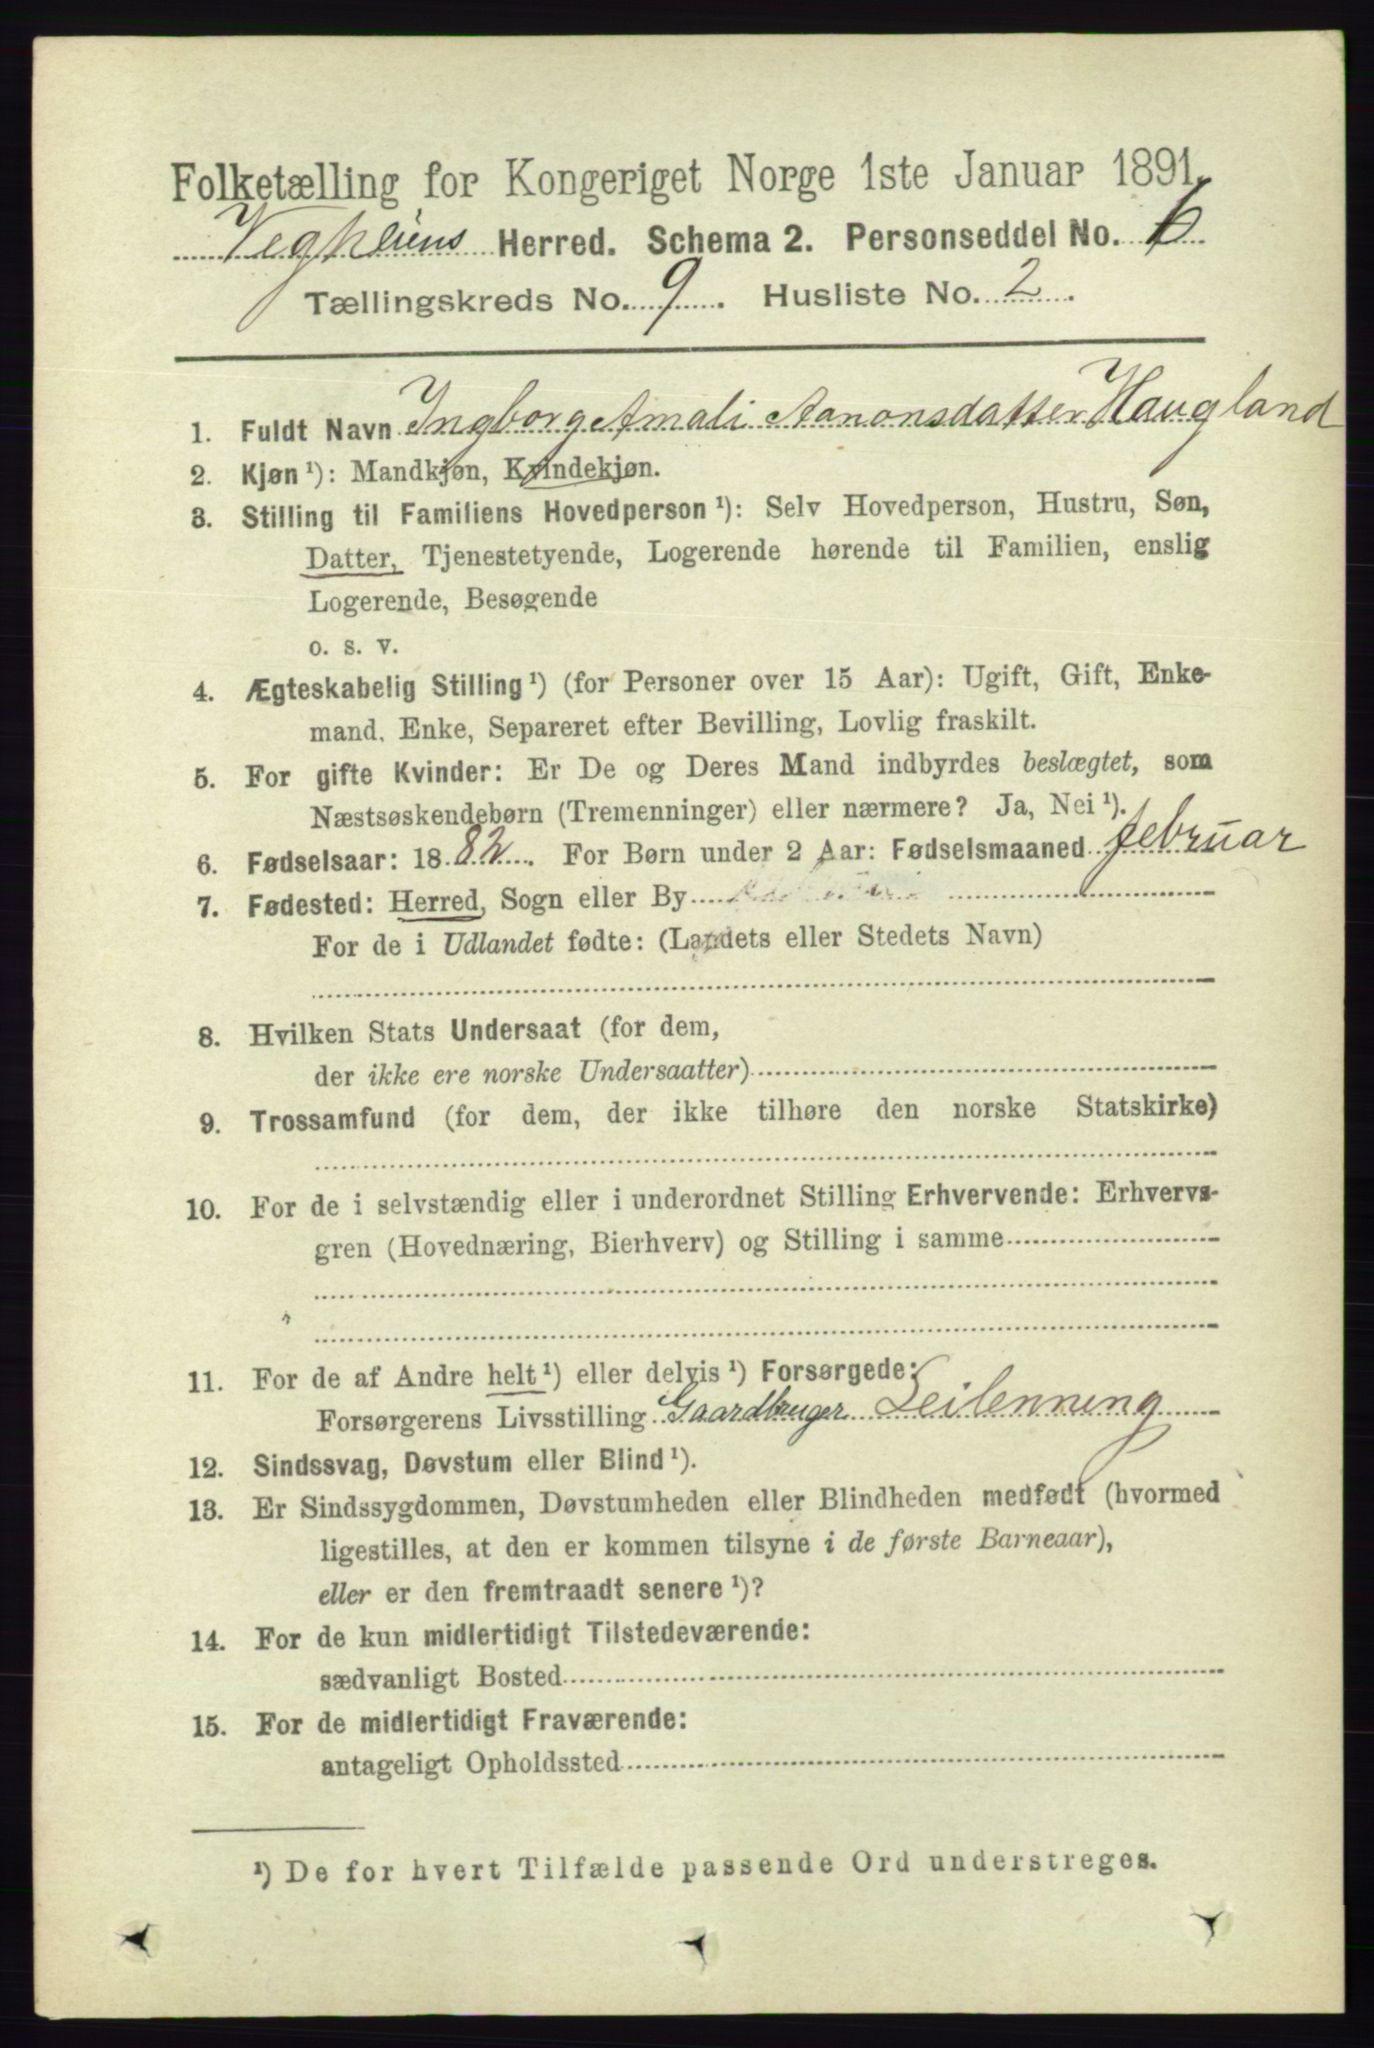 Folketælling for Kongeriget Norge 1ste Januar 1891.
Vegheiens Herred. Schema 2. Personseddel No. 6
Tællingskreds No. 9. Husliste No. 2.
1. Fuldt Navn Ingborg Amali Aanonsdatter Haugland
2. Kjøn ¹): Mandkjøn, Kvindekjøn.
3. Stilling til Familiens Hovedperson ¹): Selv Hovedperson, Hustru, Søn,
Datter, Tjenestetyende, Logerende hørende til Familien, enslig
Logerende, Besøgende
o. s. v.
4. Ægteskabelig Stilling ¹) (for Personer over 15 Aar): Ugift, Gift, Enke-
mand. Enke, Separeret efter Bevilling, Lovlig fraskilt.
5. For gifte Kvinder: Er De og Deres Mand indbyrdes beslægtet, som
Næstsøskendebørn (Tremenninger) eller nærmere? Ja, Nei ¹).
6. Fødselsaar: 1882. For Børn under 2 Aar: Fødselsmaaned februar
7. Fødested: Herred, Sogn eller By
For de i Udlandet fødte: (Landets eller Stedets Navn)
8. Hvilken Stats Undersaat (for dem,
der ikke ere norske Undersaatter)
9. Trossamfund (for dem, der ikke tilhøre den norske Statskirke)
10. For de i selvstændig eller i underordnet Stilling Erhvervende: Erhvervs-
gren (Hovednæring, Bierhverv) og Stilling i samme
11. For de af Andre helt ¹) eller delvis ¹) Forsørgede:
Forsørgerens Livsstilling Gaardbruger Leilenning
12. Sindssvag, Døvstum eller Blind ¹).
13. Er Sindssygdommen, Døvstumheden eller Blindheden medfødt (hvormed
ligestilles, at den er kommen tilsyne i de første Barneaar),
eller er den fremtraadt senere ¹)?
14. For de kun midlertidigt Tilstedeværende:
sædvanligt Bosted
15. For de midlertidigt Fraværende:
antageligt Opholdssted
¹) De for hvert Tilfælde passende Ord understreges.